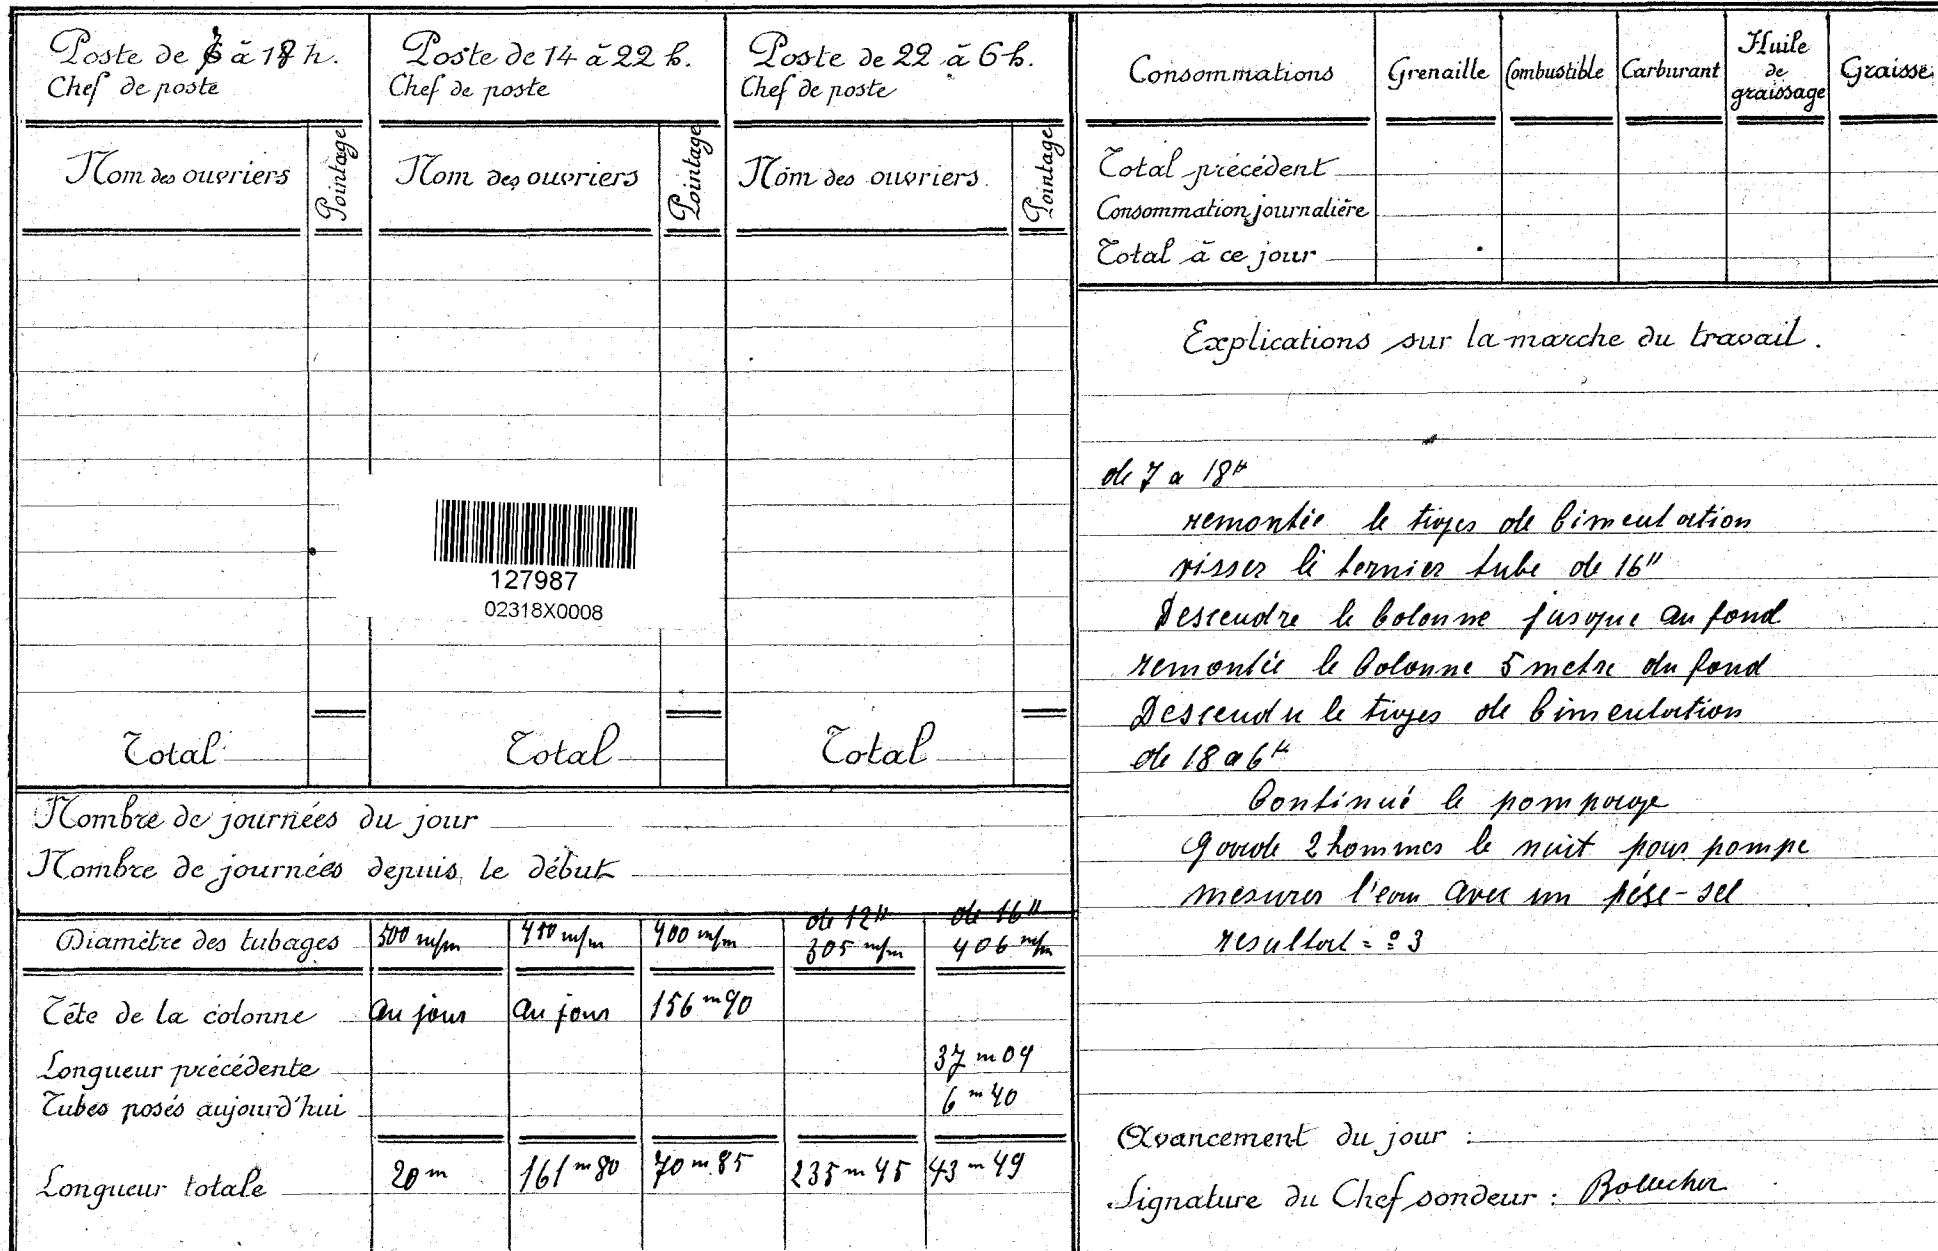 Poste de 7 à 18 h.
Chef de poste
Nom des ouvriers
Pointage
Total
Poste de 14 à 22 h.
Chef de poste
Nom des ouvriers
Pointage
Total
Poste de 22 à 6 h.
Chef de poste
Nom des ouvriers.
Pointage
Total
127987
02318X0008
Nombre de journées du jour
Nombre de journées depuis le début
Diamètre des tubages 500 m/m 450 m/m 400 m/m de 12" 305 m/m de 16" 406 m/m
Tête de la colonne au jour au jour 156 m 90
Longueur précédente 37 m 09
Tubes posés aujourd'hui 6 m 40
Longueur totale 20 m 161 m 80 70 m 85 235 m 45 43 m 49
Consommations Grenaille Combustible Carburant Huile de graissage Graisse
Total précédent
Consommation journalière
Total à ce jour
Explications sur la marche du travail.
de 7 a 18 H
remontée le tiges de Cimentation
visser le ternier tube de 16"
Descendre le Colonne jusque au fond
remontée le Colonne 5 metre du fond
Descendu le tiges de Cimentation
de 18 a 6 H
Continué le pompage
Garde 2 hommes le nuit pour pompe
mesurer l'eau avec un pése-sel
resultat = 3
Avancement du jour :
Signature du Chef sondeur :